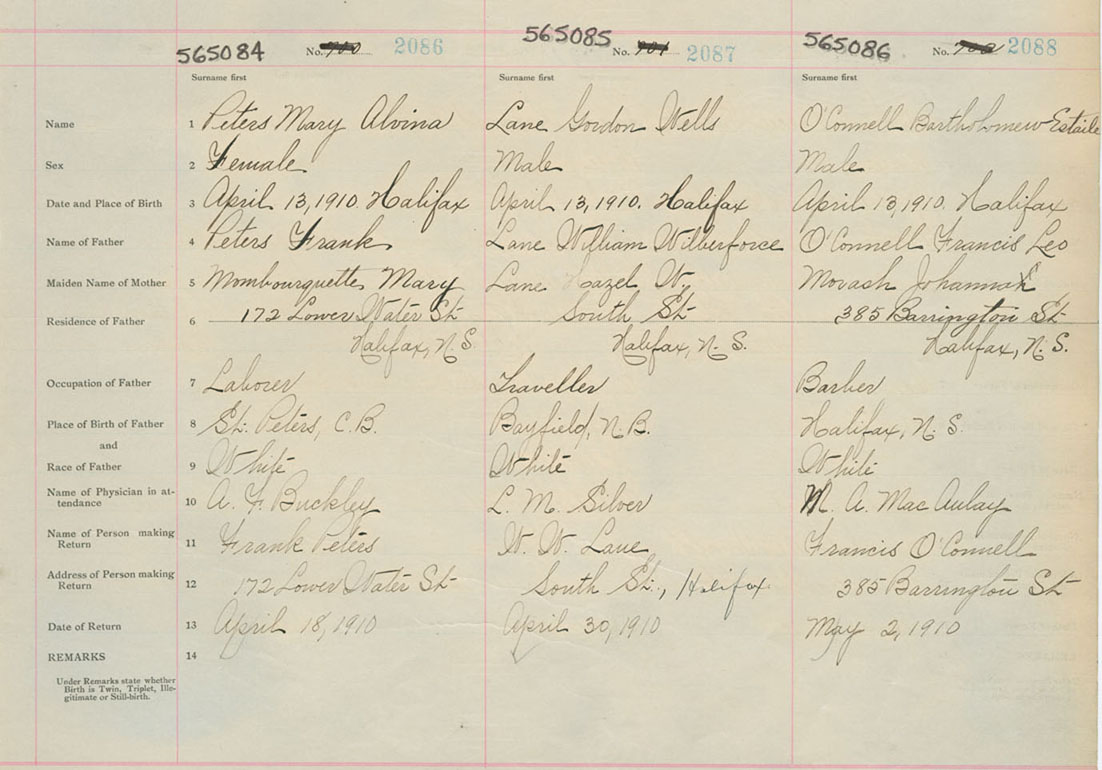 565084 No. 2086 565085 No. 2087 565086 No. 2088
Surname first Surname first Surname first
Name 1 Peters Mary Alvina Lane Gordon Wells O'Connell Bartholomew Estaile
Sex 2 Female Male Male
Date and Place of Birth 3 April 13, 1910. Halifax April 13, 1910. Halifax April 13, 1910. Halifax
Name of Father 4 Peters Frank Lane William Wilberforce O'Connell Francis Leo
Maiden Name of Mother 5 Mombourquette Mary Lane Hazel W. Movash Johannah
Residence of Father 6 172 Lower Water St South St 385 Barrington St
Halifax, N S Halifax, N. S. Halifax, N. S.
Occupation of Father 7 Laborer Traveller Barber
Place of Birth of Father 8 St. Peters, C.B. Bayfield, N.B. Halifax, N. S.
and
Race of Father 9 White White White
Name of Physician in at-
tendance 10 A. F. Buckley L. M. Silver M. A. Mac Aulay
Name of Person making
Return 11 Frank Peters W. W. Lane Francis O'Connell
Address of Person making
Return 12 172 Lower Water St South St., Halifax 385 Barrington St
Date of Return 13 April 18, 1910 April 30, 1910 May 2, 1910
REMARKS 14
Under Remarks state whether
Birth is Twin, Triplet, Ille-
gitimate or Still-birth.